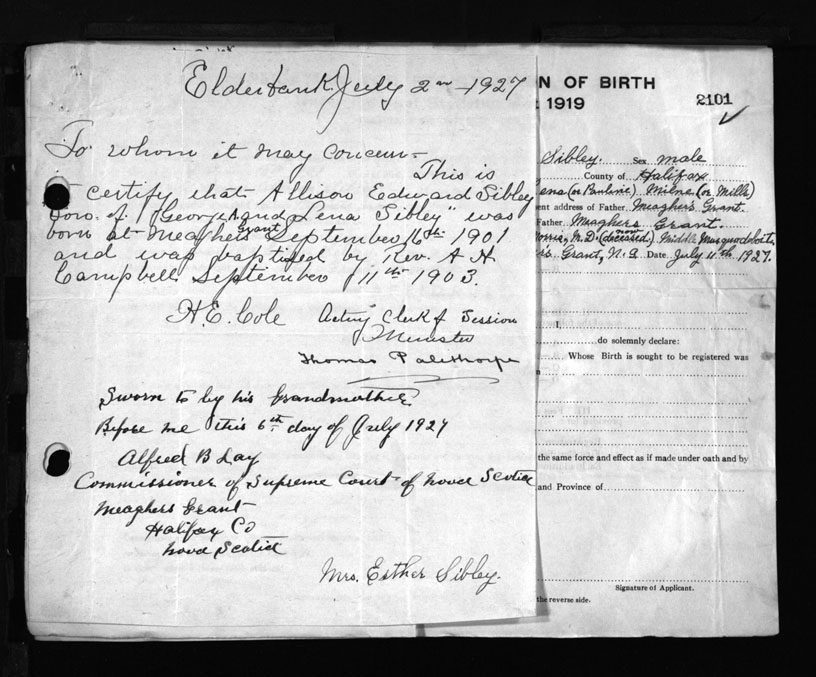 Elderbank July 2nd 1927
To whom it may concern-
This is
to certify that Allison Edward Sibley
born of "George and Lena Sibley" was
born at Meaghers Grant September 16th 1901
and was baptized by Rev. A H
Campbell September 11th 1903.
H.E. Cole Acting Clerk of Session
Minister
Thomas Palethorpe
Sworn to by his Grandmother
Before me this 6th day of July 1927
Alfred B Lay
Commissioner of Supreme Court of Nova Scotia
Meaghers Grant
Halifax Co
Nova Scotia
Mrs. Esther Sibley.
N OF BIRTH
1919
2101
Sibley. Sex male
County of Halifax
ena (or Pauline) Milne (or Mills)
ent address of Father Meaghers Grant.
Father Meaghers Grant.
orris, M.D. (deceased) Middle Musquodoboit,
rs Grant, N.S. Date July 11th, 1927.
I,
do solemnly declare:
Whose Birth is sought to be registered was
the same force and effect as if made under oath and by
and Province of
Signature of Applicant.
the reverse side.